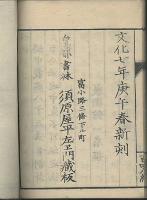 文化七年庚午春新刻
富小路三條下ル町
書林
須原屋平左衛門藏板